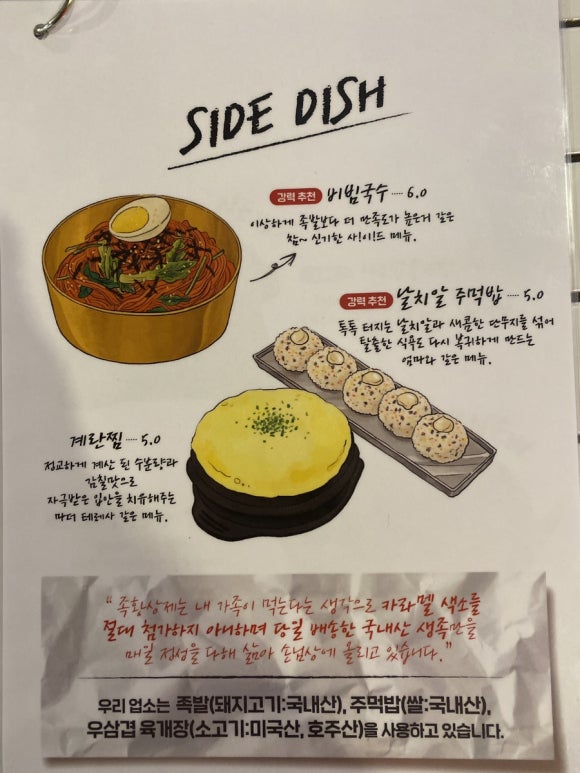 SIDE DISH
강력 추천 비빔국수 ····· 6.0
이상하게 족발보다 더 만족도가 높은거 같은
참~ 신기한 사!이!드 메뉴.
강력 추천 날치알 주먹밥 ····· 5.0
톡톡 터지는 날치알과 새콤한 단무지를 섞어
탈출한 식욕도 다시 복귀하게 만드는
엄마와 같은 메뉴.
계란찜 ····· 5.0
정교하게 계산 된 수분량과
감칠맛으로
자극받은 입안을 치유해주는
마더 테레사 같은 메뉴.
“ 족황상제는 내 가족이 먹는다는 생각으로 카라멜 색소를
절대 첨가하지 아니하며 당일 배송한 국내산 생족만을
매일 정성을 다해 삶아 손님상에 올리고 있습니다. ”
우리 업소는 족발(돼지고기:국내산), 주먹밥(쌀:국내산),
우삼겹 육개장(소고기:미국산, 호주산)을 사용하고 있습니다.